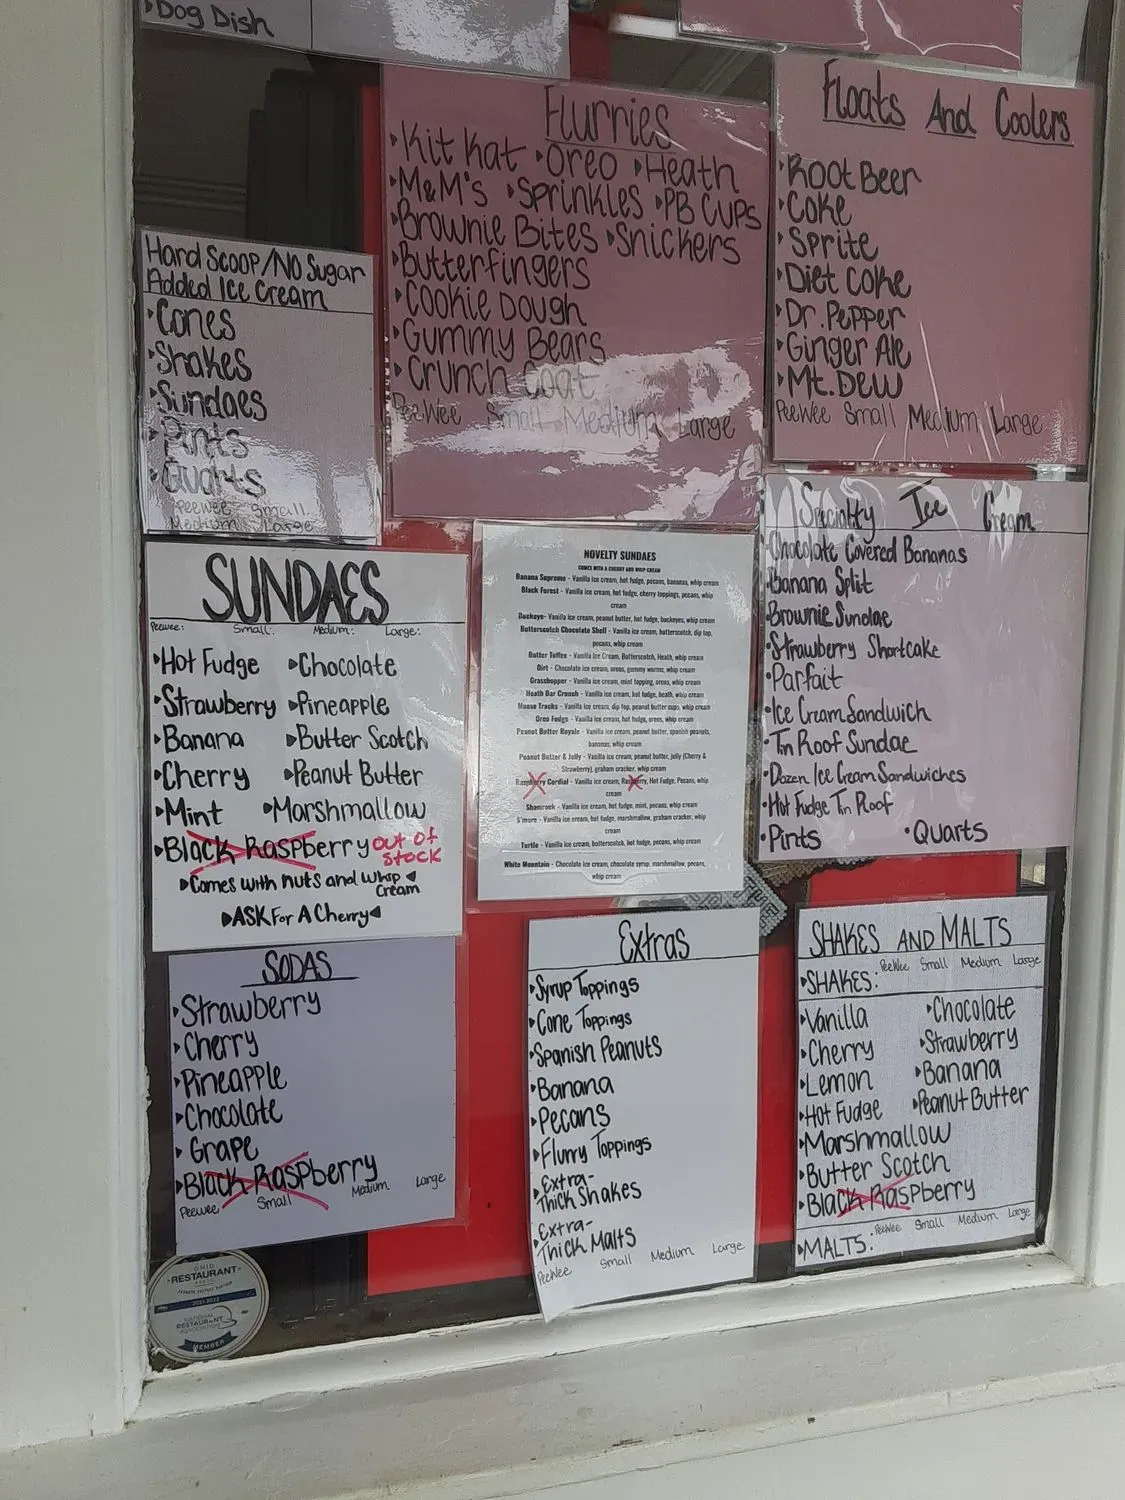 Dog Dish
Flurries
Kit Kat Oreo Heath
M&M's Sprinkles PB Cups
Brownie Bites Snickers
Butterfingers
Cookie Dough
Gummy Bears
Crunch Coat
PeeWee Small Medium Large
Floats And Coolers
Root Beer
Coke
Sprite
Diet Coke
Dr. Pepper
Ginger Ale
Mt. Dew
PeeWee Small Medium Large
Hard Scoop/No Sugar
Added Ice Cream
Cones
Shakes
Sundaes
Pints
Quarts
PeeWee Small
Medium Large
Specialty Ice Cream
Chocolate Covered Bananas
Banana Split
Brownie Sundae
Strawberry Shortcake
Parfait
Ice Cream Sandwich
Tin Roof Sundae
Dozen Ice Cream Sandwiches
Hot Fudge Tin Roof
Pints Quarts
SUNDAES
Peewee: Small: Medium: Large:
Hot Fudge Chocolate
Strawberry Pineapple
Banana Butter Scotch
Cherry Peanut Butter
Mint Marshmallow
Black Raspberry out of
stock
Comes with nuts and whip
Cream
ASK For A Cherry
NOVELTY SUNDAES
COMES WITH A CHERRY AND WHIP CREAM
Banana Supreme - Vanilla ice cream, hot fudge, pecans, bananas, whip cream
Black Forest - Vanilla ice cream, hot fudge, cherry toppings, pecans, whip
cream
Buckeye- Vanilla ice cream, peanut butter, hot fudge, buckeyes, whip cream
Butterscotch Chocolate Shell - Vanilla ice cream, butterscotch, dip top,
pecans, whip cream
Butter Toffee - Vanilla Ice Cream, Butterscotch, Heath, whip cream
Dirt - Chocolate ice cream, oreos, gummy worms, whip cream
Grasshopper - Vanilla ice cream, mint topping, oreos, whip cream
Heath Bar Crunch - Vanilla ice cream, hot fudge, heath, whip cream
Moose Tracks - Vanilla ice cream, dip top, peanut butter cups, whip cream
Oreo Fudge - Vanilla ice cream, hot fudge, oreos, whip cream
Peanut Butter Royale - Vanilla ice cream, peanut butter, spanish peanuts,
bananas, whip cream
Peanut Butter & Jelly - Vanilla ice cream, peanut butter, jelly (Cherry &
Strawberry), graham cracker, whip cream
Raspberry Cordial - Vanilla ice cream, Raspberry, Hot Fudge, Pecans, whip
cream
Shamrock - Vanilla ice cream, hot fudge, mint, pecans, whip cream
S'more - Vanilla ice cream, hot fudge, marshmallow, graham cracker, whip
cream
Turtle - Vanilla ice cream, butterscotch, hot fudge, pecans, whip cream
White Mountain - Chocolate ice cream, chocolate syrup, marshmallow, pecans,
whip cream
SODAS
Strawberry
Cherry
Pineapple
Chocolate
Grape
Black Raspberry
Peewee Small Medium Large
Extras
Syrup Toppings
Cone Toppings
Spanish Peanuts
Banana
Pecans
Flurry Toppings
Extra-
Thick Shakes
Extra-
Thick Malts
PeeWee Small Medium Large
SHAKES AND MALTS
PeeWee Small Medium Large
SHAKES:
Vanilla Chocolate
Cherry Strawberry
Lemon Banana
Hot Fudge Peanut Butter
Marshmallow
Butter Scotch
Black Raspberry
PeeWee Small Medium Large
MALTS:
OHIO
RESTAURANT
2021-2022
NATIONAL
RESTAURANT
ASSOCIATION
MEMBER